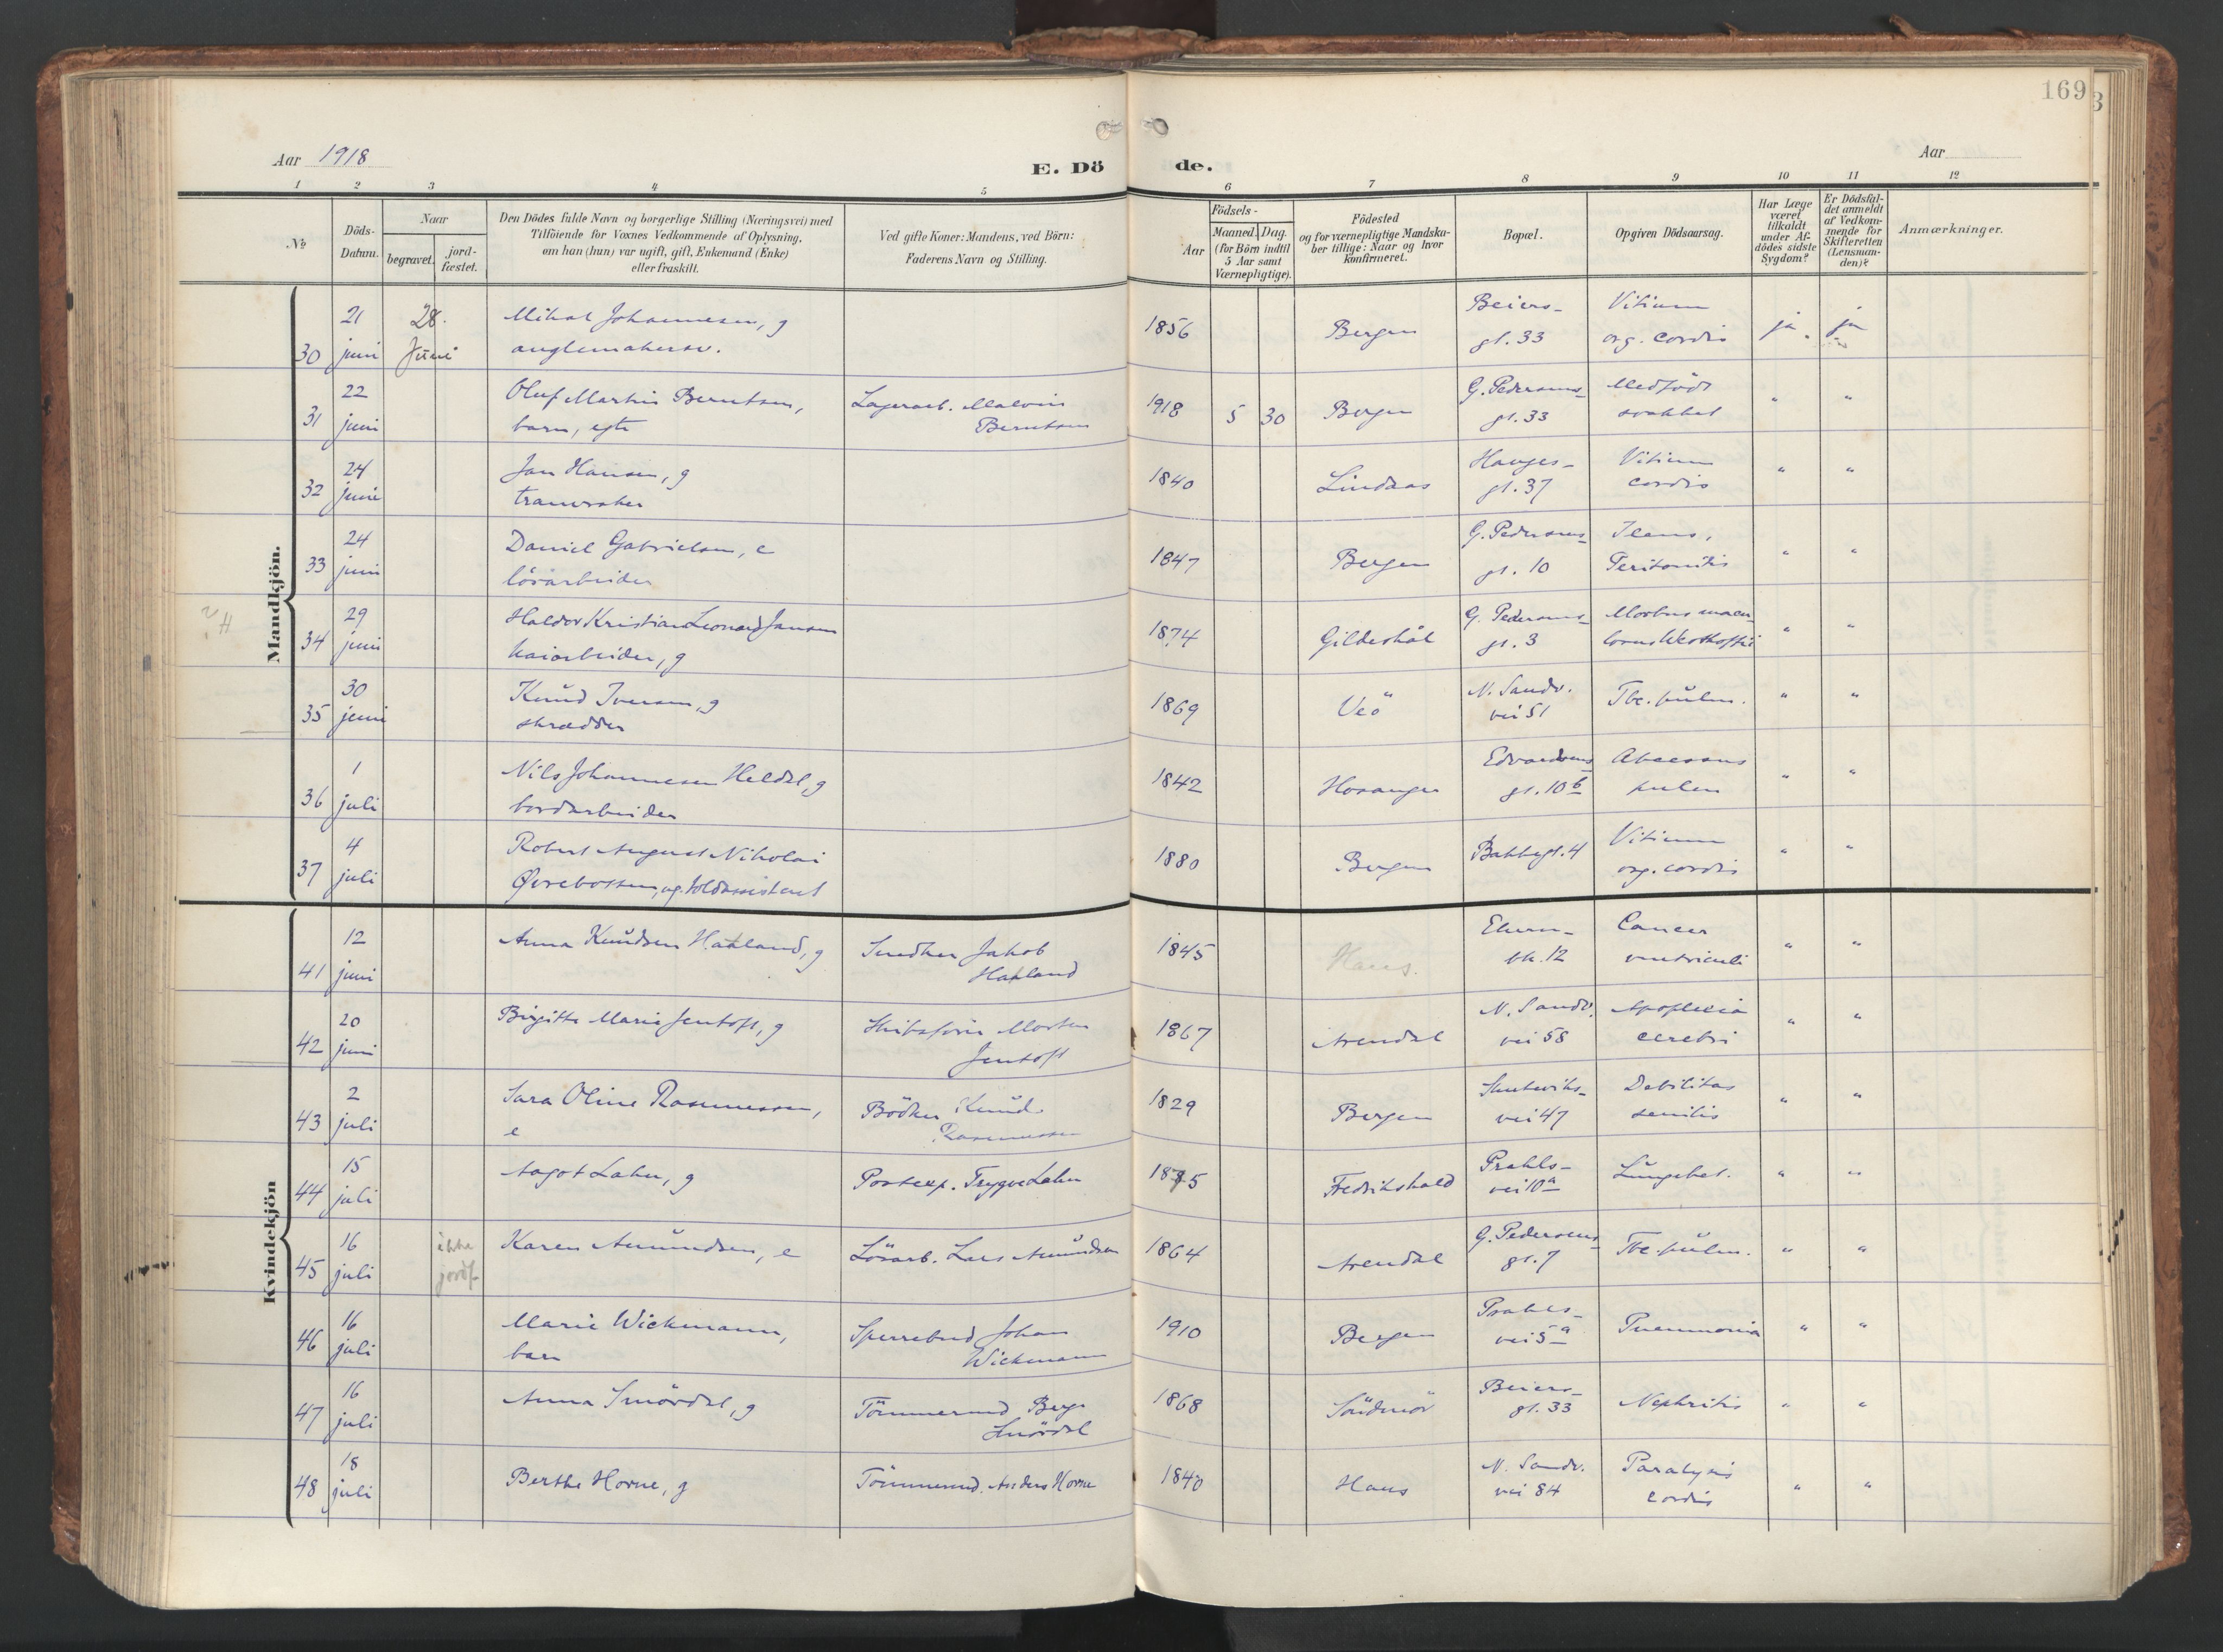 169
3
Aar 1918
E. Dö de.
Aar
1 2 3 4 5 6 7 8 9 10 11 12
№
Döds-Datum.
Naar
begravet.
jord-fæstet.
Den Dödes fulde Navn og borgerlige Stilling (Næringsvei) med
Tilföiende for Voxnes Vedkommende af Oplysning,
om han (hun) var ugift, gift, Enkemand (Enke)
eller fraskilt.
Ved gifte Koner: Mandens, ved Börn:
Faderens Navn og Stilling.
Födsels-
Aar
Maaned.
Dag.
(for Börn indtil
5 Aar samt
Værnepligtige).
Födested
og for værnepligtige Mandska-
ber tillige: Naar og hvor
konfirmeret.
Bopæl.
Opgiven Dödsaarsag.
Har Læge
været
tilkaldt
under Af-
dödes sidste
Sygdom?
Er Dödsfal-
det anmeldt
af Vedkom-
mende for
Skifteretten
(Lensman-
den)?
Anmærkninger.
Mandkjön.
30 21 juni 28. Juni Johannesen, g 1856 Bergen Beiers- gt. 33 Vitium org. cordis ja. ja
31 22 juni Oluf Martin Berntsen, barn, egte Lagerarb. Berntsen 1918 5 30 Bergen G. Pedersens- gt. 33 Medfödt svakhet " "
32 24 juni Jan Hansen, g 1840 Lindaas Hauges- gt. 37 Vitium cordis " "
33 24 juni Daniel Gabrielsen, e lösarbeider 1847 Bergen G. Pedersens- gt. 10 Ileus, Peritonitis " "
34 29 juni Haldor Kristian Leonard Jansen kaiarbeider, g 1874 Gildeskål G. Pedersens- gt. 3 Morbus macu- losus Werlhoffii " "
35 30 juni Knud Iversen, g skrædder 1869 Veö N. Sandv. vei 51 Tbc. pulm. " "
36 1 juli Nils Johannesen Heldal, g bordarbeider 1842 Hosanger Edvardsens- gt. 10b Abcessus pulm " "
37 4 juli Robert August Nikolai Øvrebotten, ug. toldassistent 1880 Bergen Bakkegt. 4 Vitium org. cordis " "
Kvindekjön
41 12 juni Anna Knudsen Haaland, g Snedker Jakob Haaland 1845 Haus. bk. 12 Cancer ventriculi " "
42 20 juni Birgitte Marie Jentoft, g Skibsförer Morten Jentoft 1867 Arendal N. Sandv. vei 58 Apoplexia cerebri " "
43 2 juli Sara Oline Rasmussen, e Bödker Knud Rasmussen 1829 Bergen vei 47 Debilitas senilis " "
44 15 juli Aagot Lahn, g Postexp. Trygve Lahn 1875 Fredrikshald Prahls- vei 10a Lungebet. " "
45 16 juli ikke jordf. Karen Amundsen, e Lösarb. Lars Amundsen 1864 Arendal G. Pedersens- gt. 7 Tbc. pulm. " "
46 16 juli Marie Wickmann, barn Sperrebud Johan Wickmann 1910 Bergen Prahls- vei 5a Pneumonia " "
47 16 juli Anna Smördal, g Tömmermd Berge Smördal 1868 Söndmör Beiers- gt. 33 Nephritis " "
48 18 juli Berthe Horne, g Tömmermd. Anders Horne 1840 Haus N. Sandv. vei 84 Paralysis cordis " "